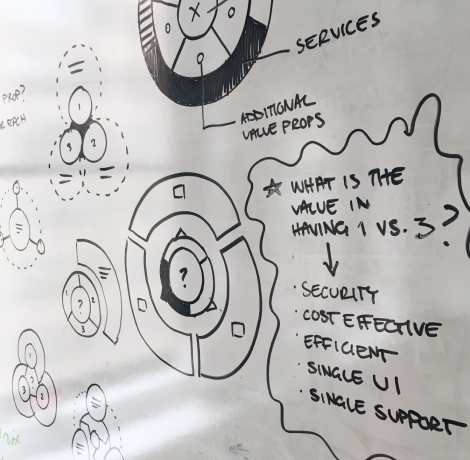 SERVICES
ADDITIONAL
VALUE PROPS
PROP?
EACH
X
?
1
3
2
1
2
3
?
1
3
2
WHAT IS THE
VALUE IN
HAVING 1 VS. 3?
· SECURITY
· COST EFFECTIVE
· EFFICIENT
· SINGLE UI
· SINGLE SUPPORT